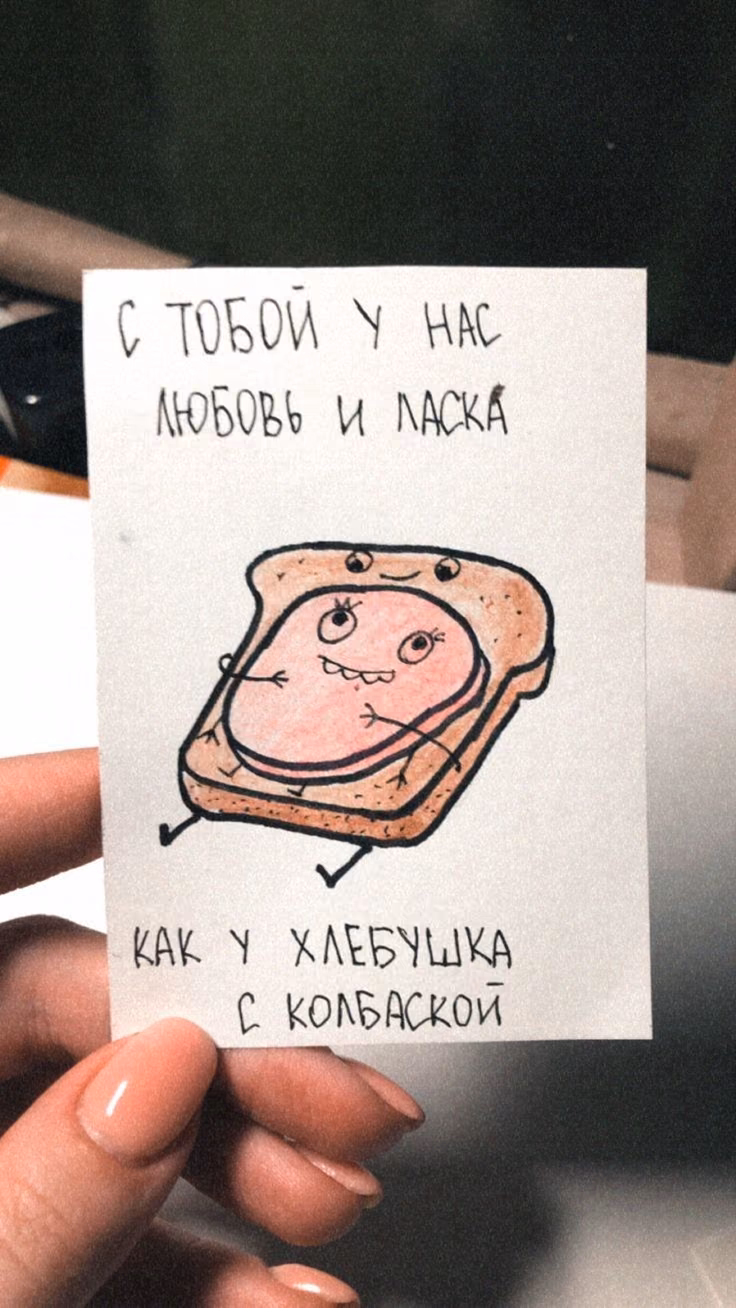 С ТОБОЙ У НАС
ЛЮБОВЬ И ЛАСКА
КАК У ХЛЕБУШКА
С КОЛБАСКОЙ